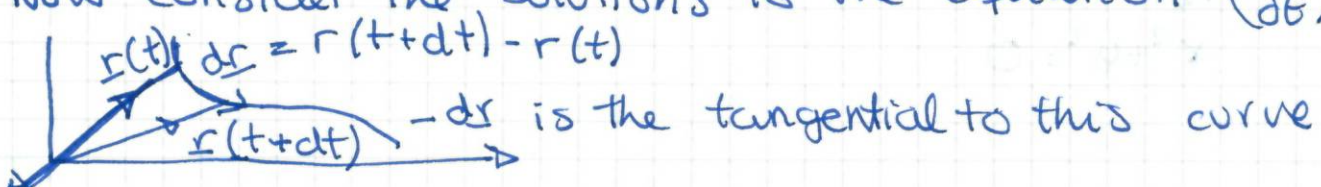 Now consider the solutions is the equation (dt
r(t) dr = r(t+dt) - r(t)
r(t+dt) - dr is the tangential to this curve